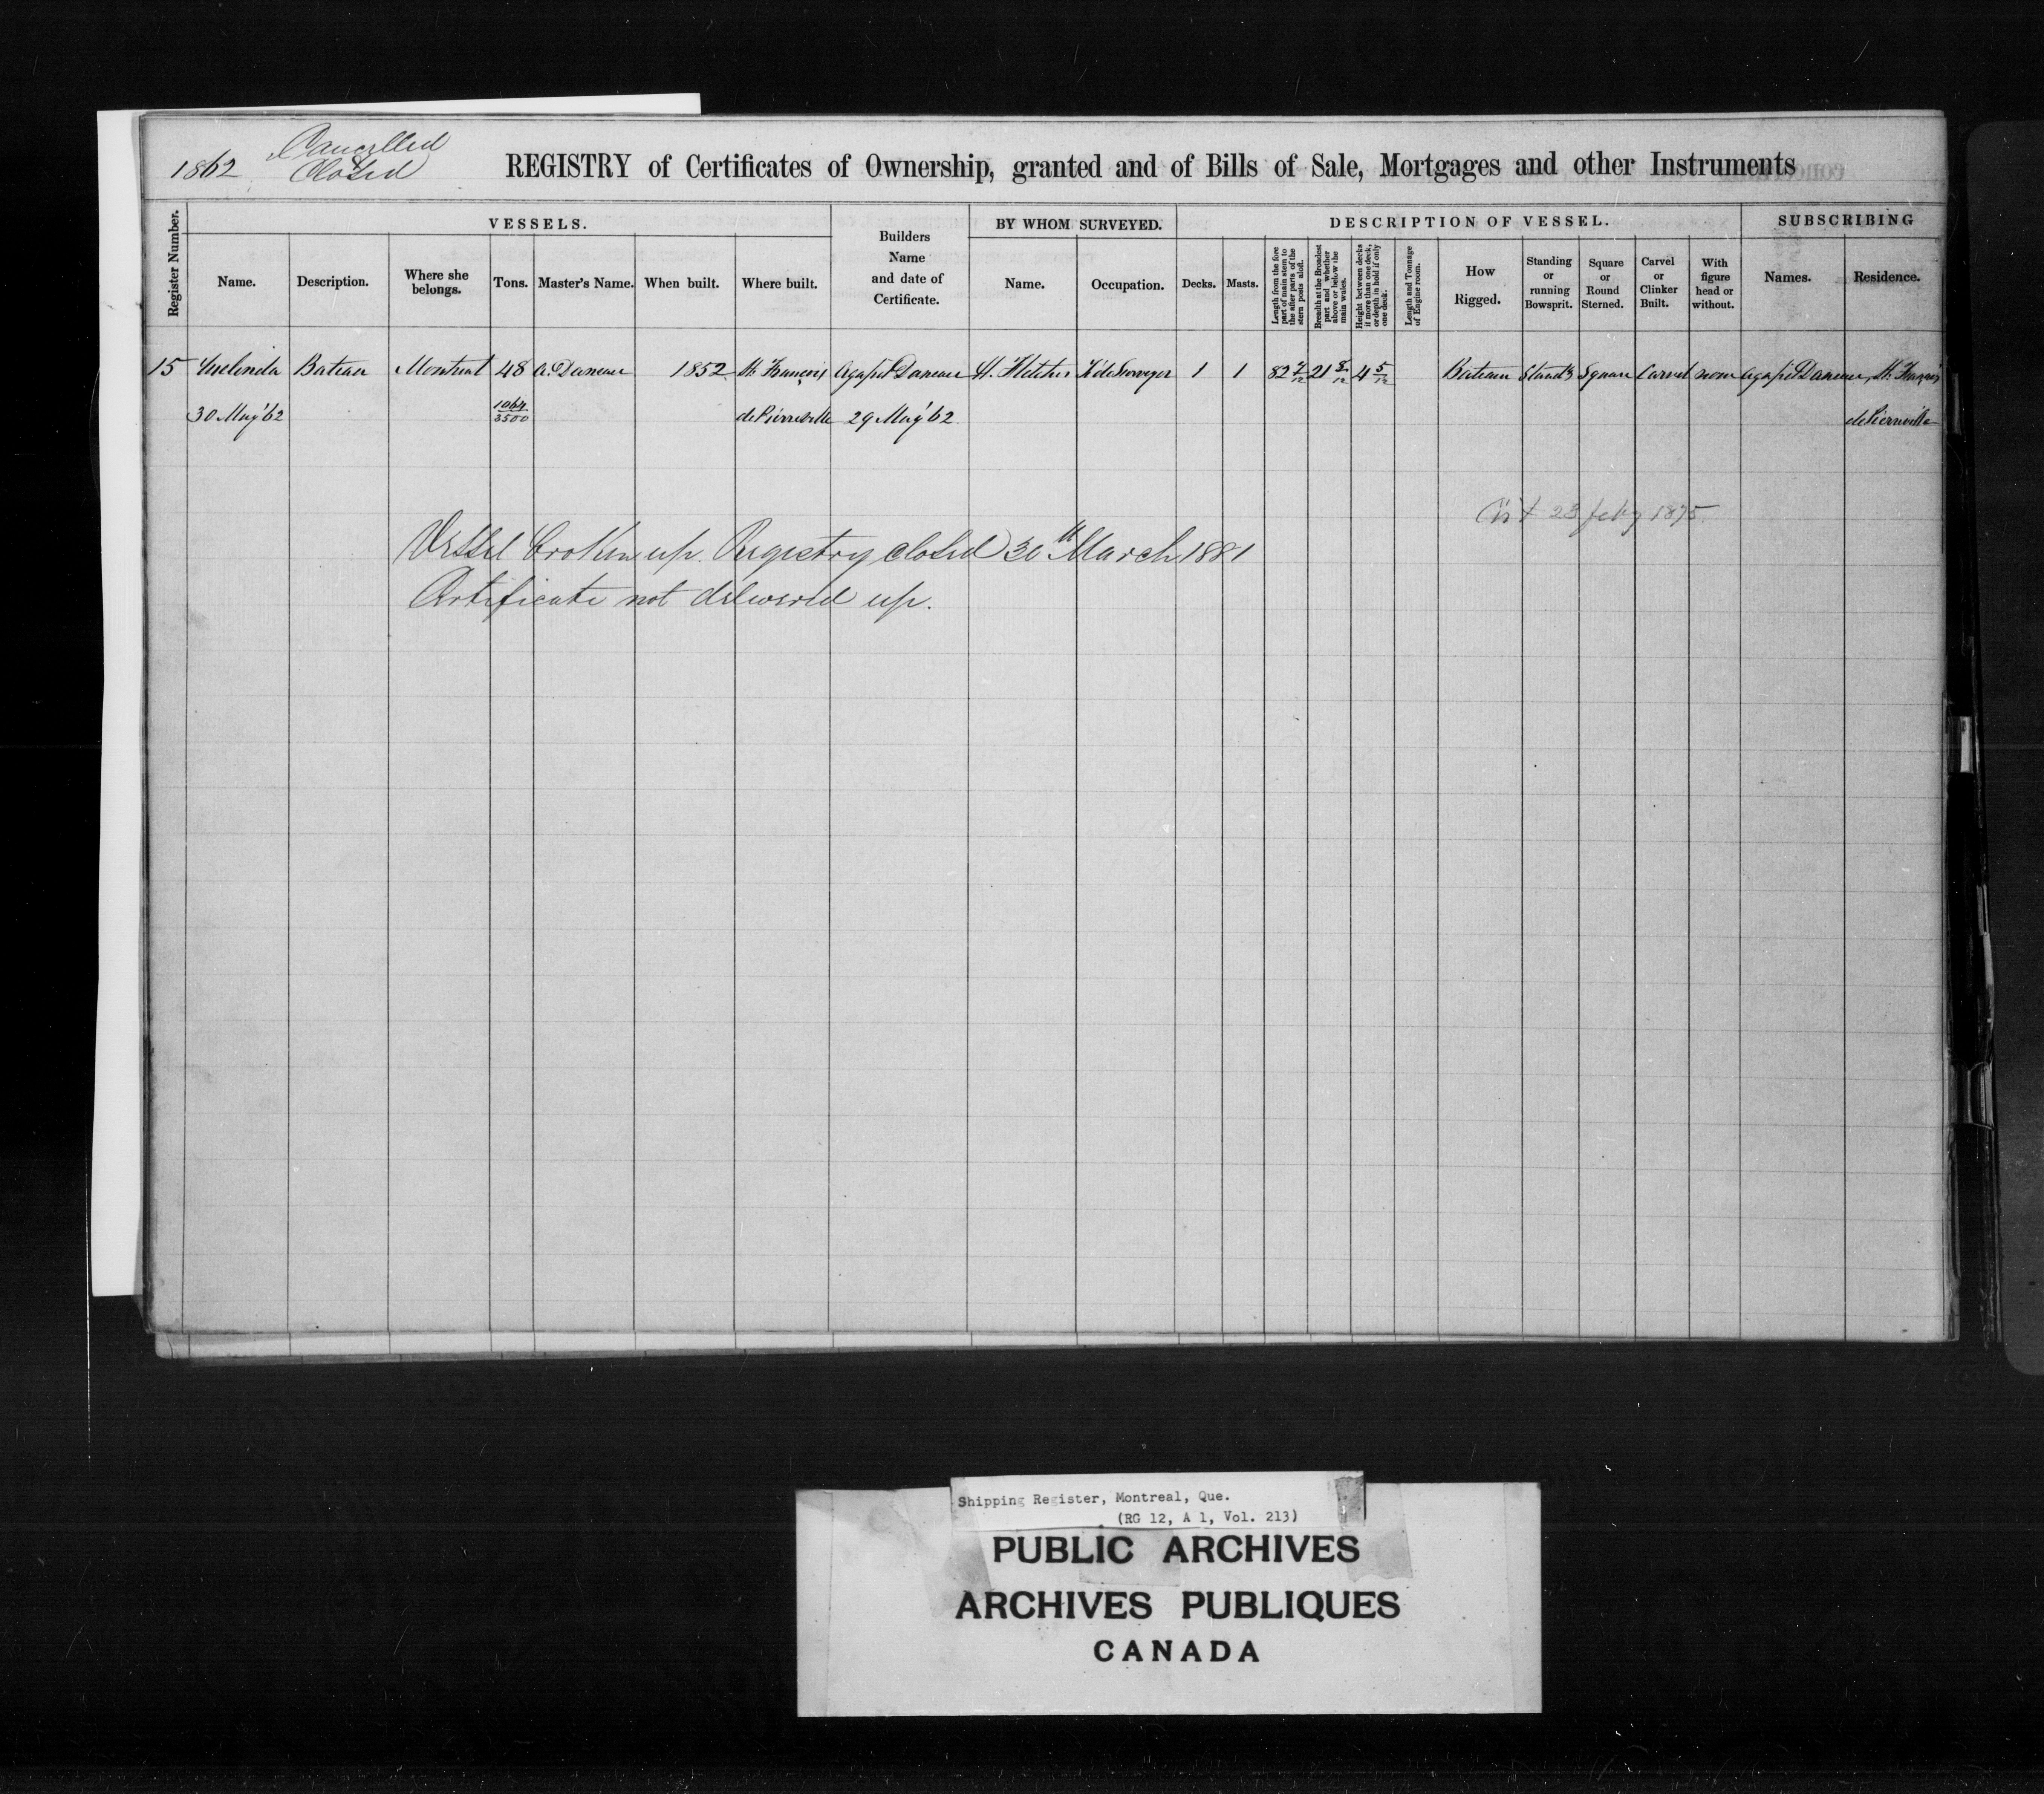 1862
Cancelled
Closed
REGISTRY of Certificates of Ownership, granted and of Bills of Sale, Mortgages and other Instruments
Register Number.
VESSELS.
Name.
Description.
Where she belongs.
Tons.
Master's Name.
When built.
Where built.
Builders Name and date of Certificate.
BY WHOM SURVEYED.
Name.
Occupation.
DESCRIPTION OF VESSEL.
Decks.
Masts.
Length from the fore part of main stem to the after parts of the stern posts aloft.
Breadth at the Broadest part and whether above or below the main wales.
Height between decks if more than one deck, or depth in hold if only one deck.
Length and Tonnage of Engine room.
How Rigged.
Standing or running Bowsprit.
Square or Round Sterned.
Carvel or Clinker Built.
With figure head or without.
SUBSCRIBING
Names.
Residence.
15 Bateau Montreal 48 A. Daneau 1852 St. François Agapit Daneau H. Fletcher Surveyor 1 1 82 7/12 21 8/12 4 5/12 Bateau Stand'g Square Carvel none Agapit Daneau, St. François
30 May '62 1064/3500 de Pierreville 29 May '62 de Pierreville
23 feby 1875
Vessel broken up. Registry closed 30th March 1881
Certificate not delivered up.
Shipping Register, Montreal, Que.
(RG 12, A 1, Vol. 213)
PUBLIC ARCHIVES
ARCHIVES PUBLIQUES
CANADA